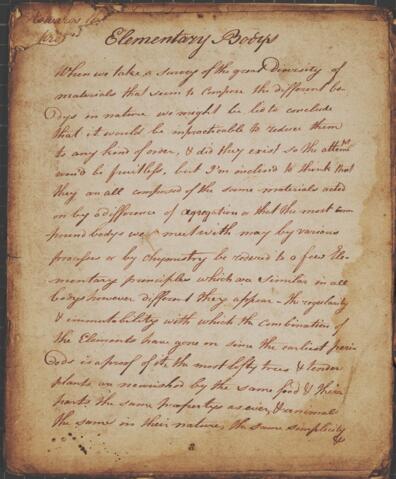 Elementary Bodys
When we take a survey of the great Diversity of
materials that seem to compose the different bo-
dys in nature we might be led to conclude
that it would be impracticable to reduce them
to any kind of order, & did they exist so the attempt
wou'd be fruitless, but I'm inclined to think that
they are all composed of the same materials acted
on by a difference of agregation or that the most com
pound bodys we meet with may by various
processes or by chymistry be reduced to a few Ele-
mentary principles which are similar in all
bodys however different they appear - the regularity
& immutability with which the Combination of
the Elements have gone on since the earliest peri
ods is a proof of it, the most lofty trees & tender
plants are nourished by the same food & their
parts the same propertys as ever, & animal
the same in their nature, the same simplicity
&
a